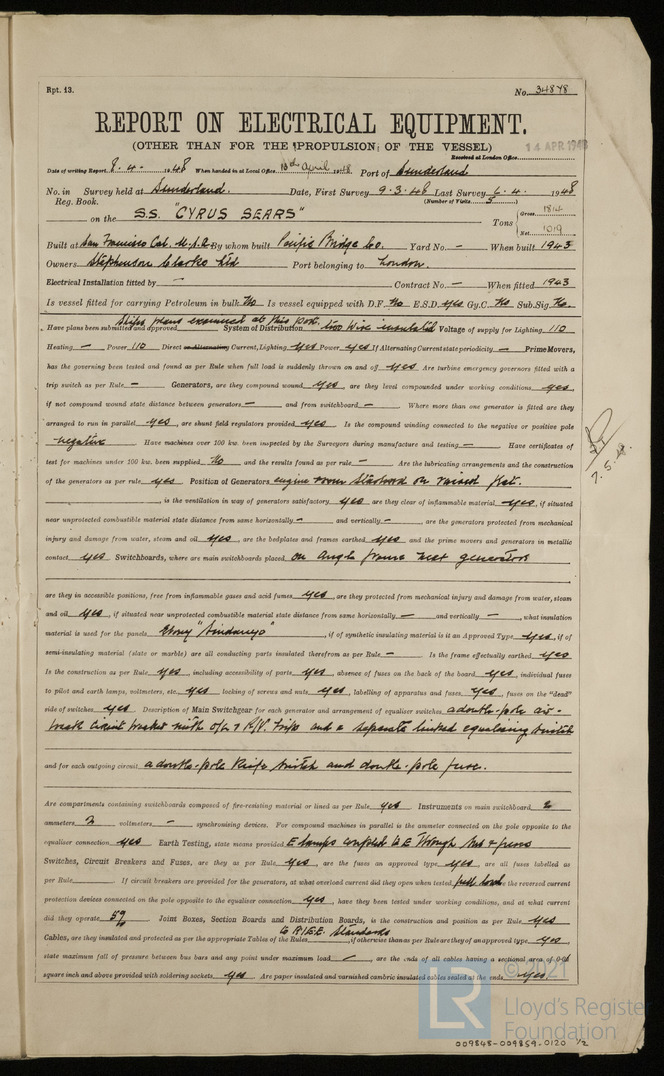 Rpt. 13.
No. 34878
REPORT ON ELECTRICAL EQUIPMENT.
(OTHER THAN FOR THE PROPULSION OF THE VESSEL)
14 APR 1948
Received at London Office
Date of writing Report 8.4. 1948 When handed in at Local Office 10th April 1948 Port of Sunderland
No. in Survey held at Sunderland. Date, First Survey 9.3.48 Last Survey 6.4. 1948
Reg. Book. (Number of Visits 5)
on the S.S. "CYRUS SEARS" Tons { Gross 1814 Net 1019
Built at San Francisco Cal. U.S.A. By whom built Pacific Bridge Co. Yard No. — When built 1943
Owners Stephenson Clarke Ltd Port belonging to London.
Electrical Installation fitted by — Contract No. — When fitted 1943
Is vessel fitted for carrying Petroleum in bulk No Is vessel equipped with D.F. No E.S.D. yes Gy.C. No Sub.Sig. No.
Ships plans examined at this Port.
Have plans been submitted and approved System of Distribution two wire insulated Voltage of supply for Lighting 110
Heating — Power 110 Direct or Alternating Current, Lighting yes Power yes If Alternating Current state periodicity — Prime Movers,
has the governing been tested and found as per Rule when full load is suddenly thrown on and off yes Are turbine emergency governors fitted with a
trip switch as per Rule — Generators, are they compound wound yes, are they level compounded under working conditions yes,
if not compound wound state distance between generators — and from switchboard — Where more than one generator is fitted are they
arranged to run in parallel yes, are shunt field regulators provided yes Is the compound winding connected to the negative or positive pole
negative Have machines over 100 kw. been inspected by the Surveyors during manufacture and testing — Have certificates of
test for machines under 100 kw. been supplied No and the results found as per rule — Are the lubricating arrangements and the construction
of the generators as per rule yes Position of Generators engine room starboard on raised flat.
, is the ventilation in way of generators satisfactory yes are they clear of inflammable material yes, if situated
near unprotected combustible material state distance from same horizontally — and vertically — are the generators protected from mechanical
injury and damage from water, steam and oil yes, are the bedplates and frames earthed yes and the prime movers and generators in metallic
contact yes Switchboards, where are main switchboards placed on angle frame next generators
are they in accessible positions, free from inflammable gases and acid fumes yes, are they protected from mechanical injury and damage from water, steam
and oil yes, if situated near unprotected combustible material state distance from same horizontally — and vertically —, what insulation
material is used for the panels Ebony "Sindanyo", if of synthetic insulating material is it an Approved Type yes, if of
semi-insulating material (slate or marble) are all conducting parts insulated therefrom as per Rule — Is the frame effectually earthed yes
Is the construction as per Rule yes, including accessibility of parts yes, absence of fuses on the back of the board yes, individual fuses
to pilot and earth lamps, voltmeters, etc. yes locking of screws and nuts yes, labelling of apparatus and fuses yes, fuses on the "dead"
side of switches yes Description of Main Switchgear for each generator and arrangement of equaliser switches a double-pole air-
break circuit breaker with o/l & R/V. trips and a separate linked equalising switch
and for each outgoing circuit a double-pole knife switch and double-pole fuse.
Are compartments containing switchboards composed of fire-resisting material or lined as per Rule yes Instruments on main switchboard 2
ammeters 2 voltmeters — synchronising devices. For compound machines in parallel is the ammeter connected on the pole opposite to the
equaliser connection yes Earth Testing, state means provided E lamps coupled to E through Sw & fuses
Switches, Circuit Breakers and Fuses, are they as per Rule yes, are the fuses an approved type yes, are all fuses labelled as
per Rule If circuit breakers are provided for the generators, at what overload current did they open when tested full load, the reversed current
protection devices connected on the pole opposite to the equaliser connection yes, have they been tested under working conditions, and at what current
did they operate 5% Joint Boxes, Section Boards and Distribution Boards, is the construction and position as per Rule yes
to A.I.E.E. Standards
Cables, are they insulated and protected as per the appropriate Tables of the Rules, if otherwise than as per Rule are they of an approved type yes,
state maximum fall of pressure between bus bars and any point under maximum load —, are the ends of all cables having a sectional area of 0.04
square inch and above provided with soldering sockets yes Are paper insulated and varnished cambric insulated cables sealed at the ends yes
7.5.48.
© 2021
LR
Lloyd's Register
Foundation
009848-009859-0120 1/2